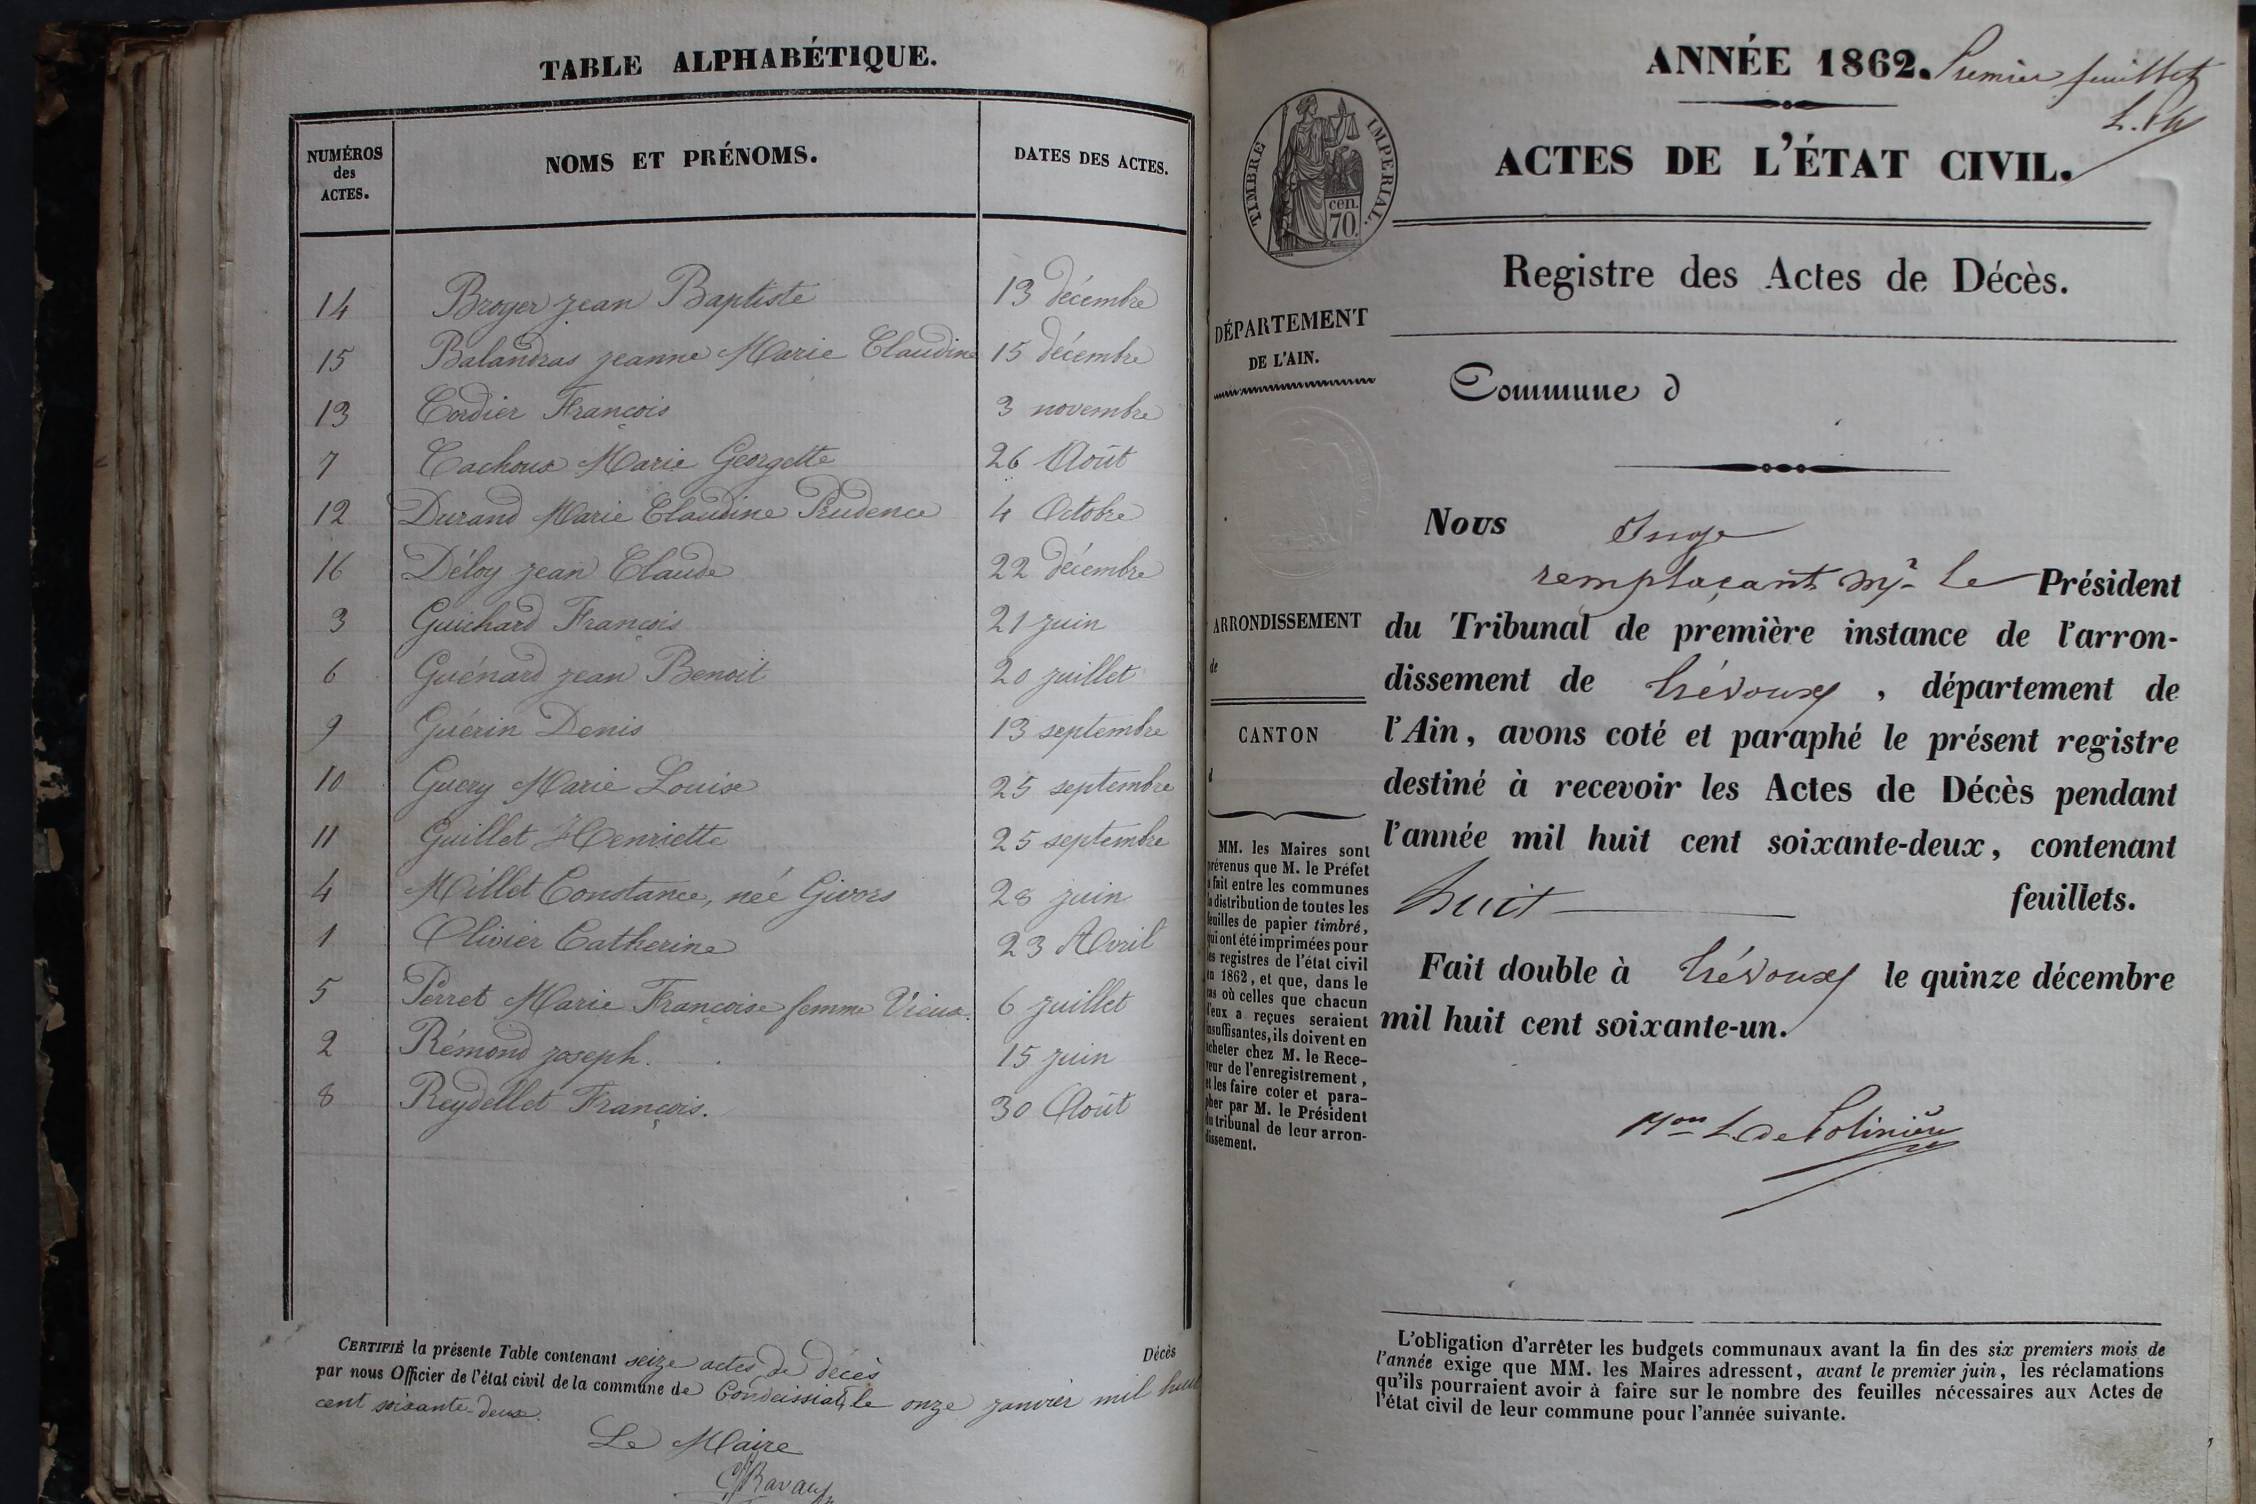 TABLE ALPHABÉTIQUE.
NUMÉROS des ACTES. NOMS ET PRÉNOMS. DATES DES ACTES.
14 Broyer jean Baptiste 13 décembre
15 Balandras jeanne Marie Claudine 15 décembre
13 Cordier François 3 novembre
7 Cachoux Marie Georgette 26 Août
12 Durand Marie Claudine Prudence 4 Octobre
16 Déloy jean Claude 22 décembre
3 Guichard François 21 juin
6 Guénard jean Benoit 20 juillet
9 Guérin Denis 13 septembre
10 Guery Marie Louise 25 septembre
11 Guillet Henriette 25 septembre
4 Millet Constance, née Givors 28 juin
1 Olivier Catherine 23 Avril
5 Perret Marie Françoise femme Vieux. 6 juillet
2 Rémond joseph. 15 juin
8 Reydellet François. 30 Août
CERTIFIÉ la présente Table contenant seize actes de décès Décès
par nous Officier de l'état civil de la commune de Condeissiat, le onze janvier mil huit
cent soixante-deux.
Le Maire
ANNÉE 1862. Premier feuillet
ACTES DE L'ÉTAT CIVIL.
TIMBRE IMPERIAL.
cen.
70.
Registre des Actes de Décès.
DÉPARTEMENT
DE L'AIN.
Commune d
ARRONDISSEMENT
de
CANTON
d
MM. les Maires sont
prévenus que M. le Préfet
a fait entre les communes
la distribution de toutes les
feuilles de papier timbré,
qui ont été imprimées pour
les registres de l'état civil
en 1862, et que, dans le
cas où celles que chacun
d'eux a reçues seraient
insuffisantes, ils doivent en
acheter chez M. le Rece-
veur de l'enregistrement,
et les faire coter et para-
pher par M. le Président
du tribunal de leur arron-
dissement.
Nous Juge
remplaçant Mr. le Président
du Tribunal de première instance de l'arron-
dissement de Trévoux, département de
l'Ain, avons coté et paraphé le présent registre
destiné à recevoir les Actes de Décès pendant
l'année mil huit cent soixante-deux, contenant
huit feuillets.
Fait double à Trévoux le quinze décembre
mil huit cent soixante-un.
L'obligation d'arrêter les budgets communaux avant la fin des six premiers mois de
l'année exige que MM. les Maires adressent, avant le premier juin, les réclamations
qu'ils pourraient avoir à faire sur le nombre des feuilles nécessaires aux Actes de
l'état civil de leur commune pour l'année suivante.